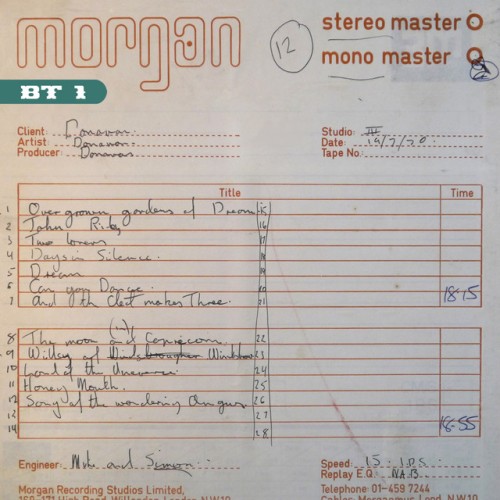 morgan
stereo master
mono master
12
BT 1
Client: Donovan.
Artist: Donovan.
Producer: Donovan
Studio: III
Date: 7/70
Tape No:
Title
Time
1 Overgrown gardens of Dream 15
2 John Riley 16
3 Two lovers 17
4 Days in Silence. 18
5 Dream 19
6 Can you Dance. 20
7 And the Cleft makes Three. 21
18-15
8 The moon (in) Capricorn. 22
9 Willow of Windsbrough 23
10 Lord of the Universe. 24
11 Honey Mouth. 25
12 Song of the wandering Angus 26
13 27
14 28
18-55
Engineer: Mike and Simon
Speed: 15 IPS
Replay E.Q.: NAB
Morgan Recording Studios Limited,
Telephone: 01-459 7244
169-171 High Road, Willesden, London N.W.10